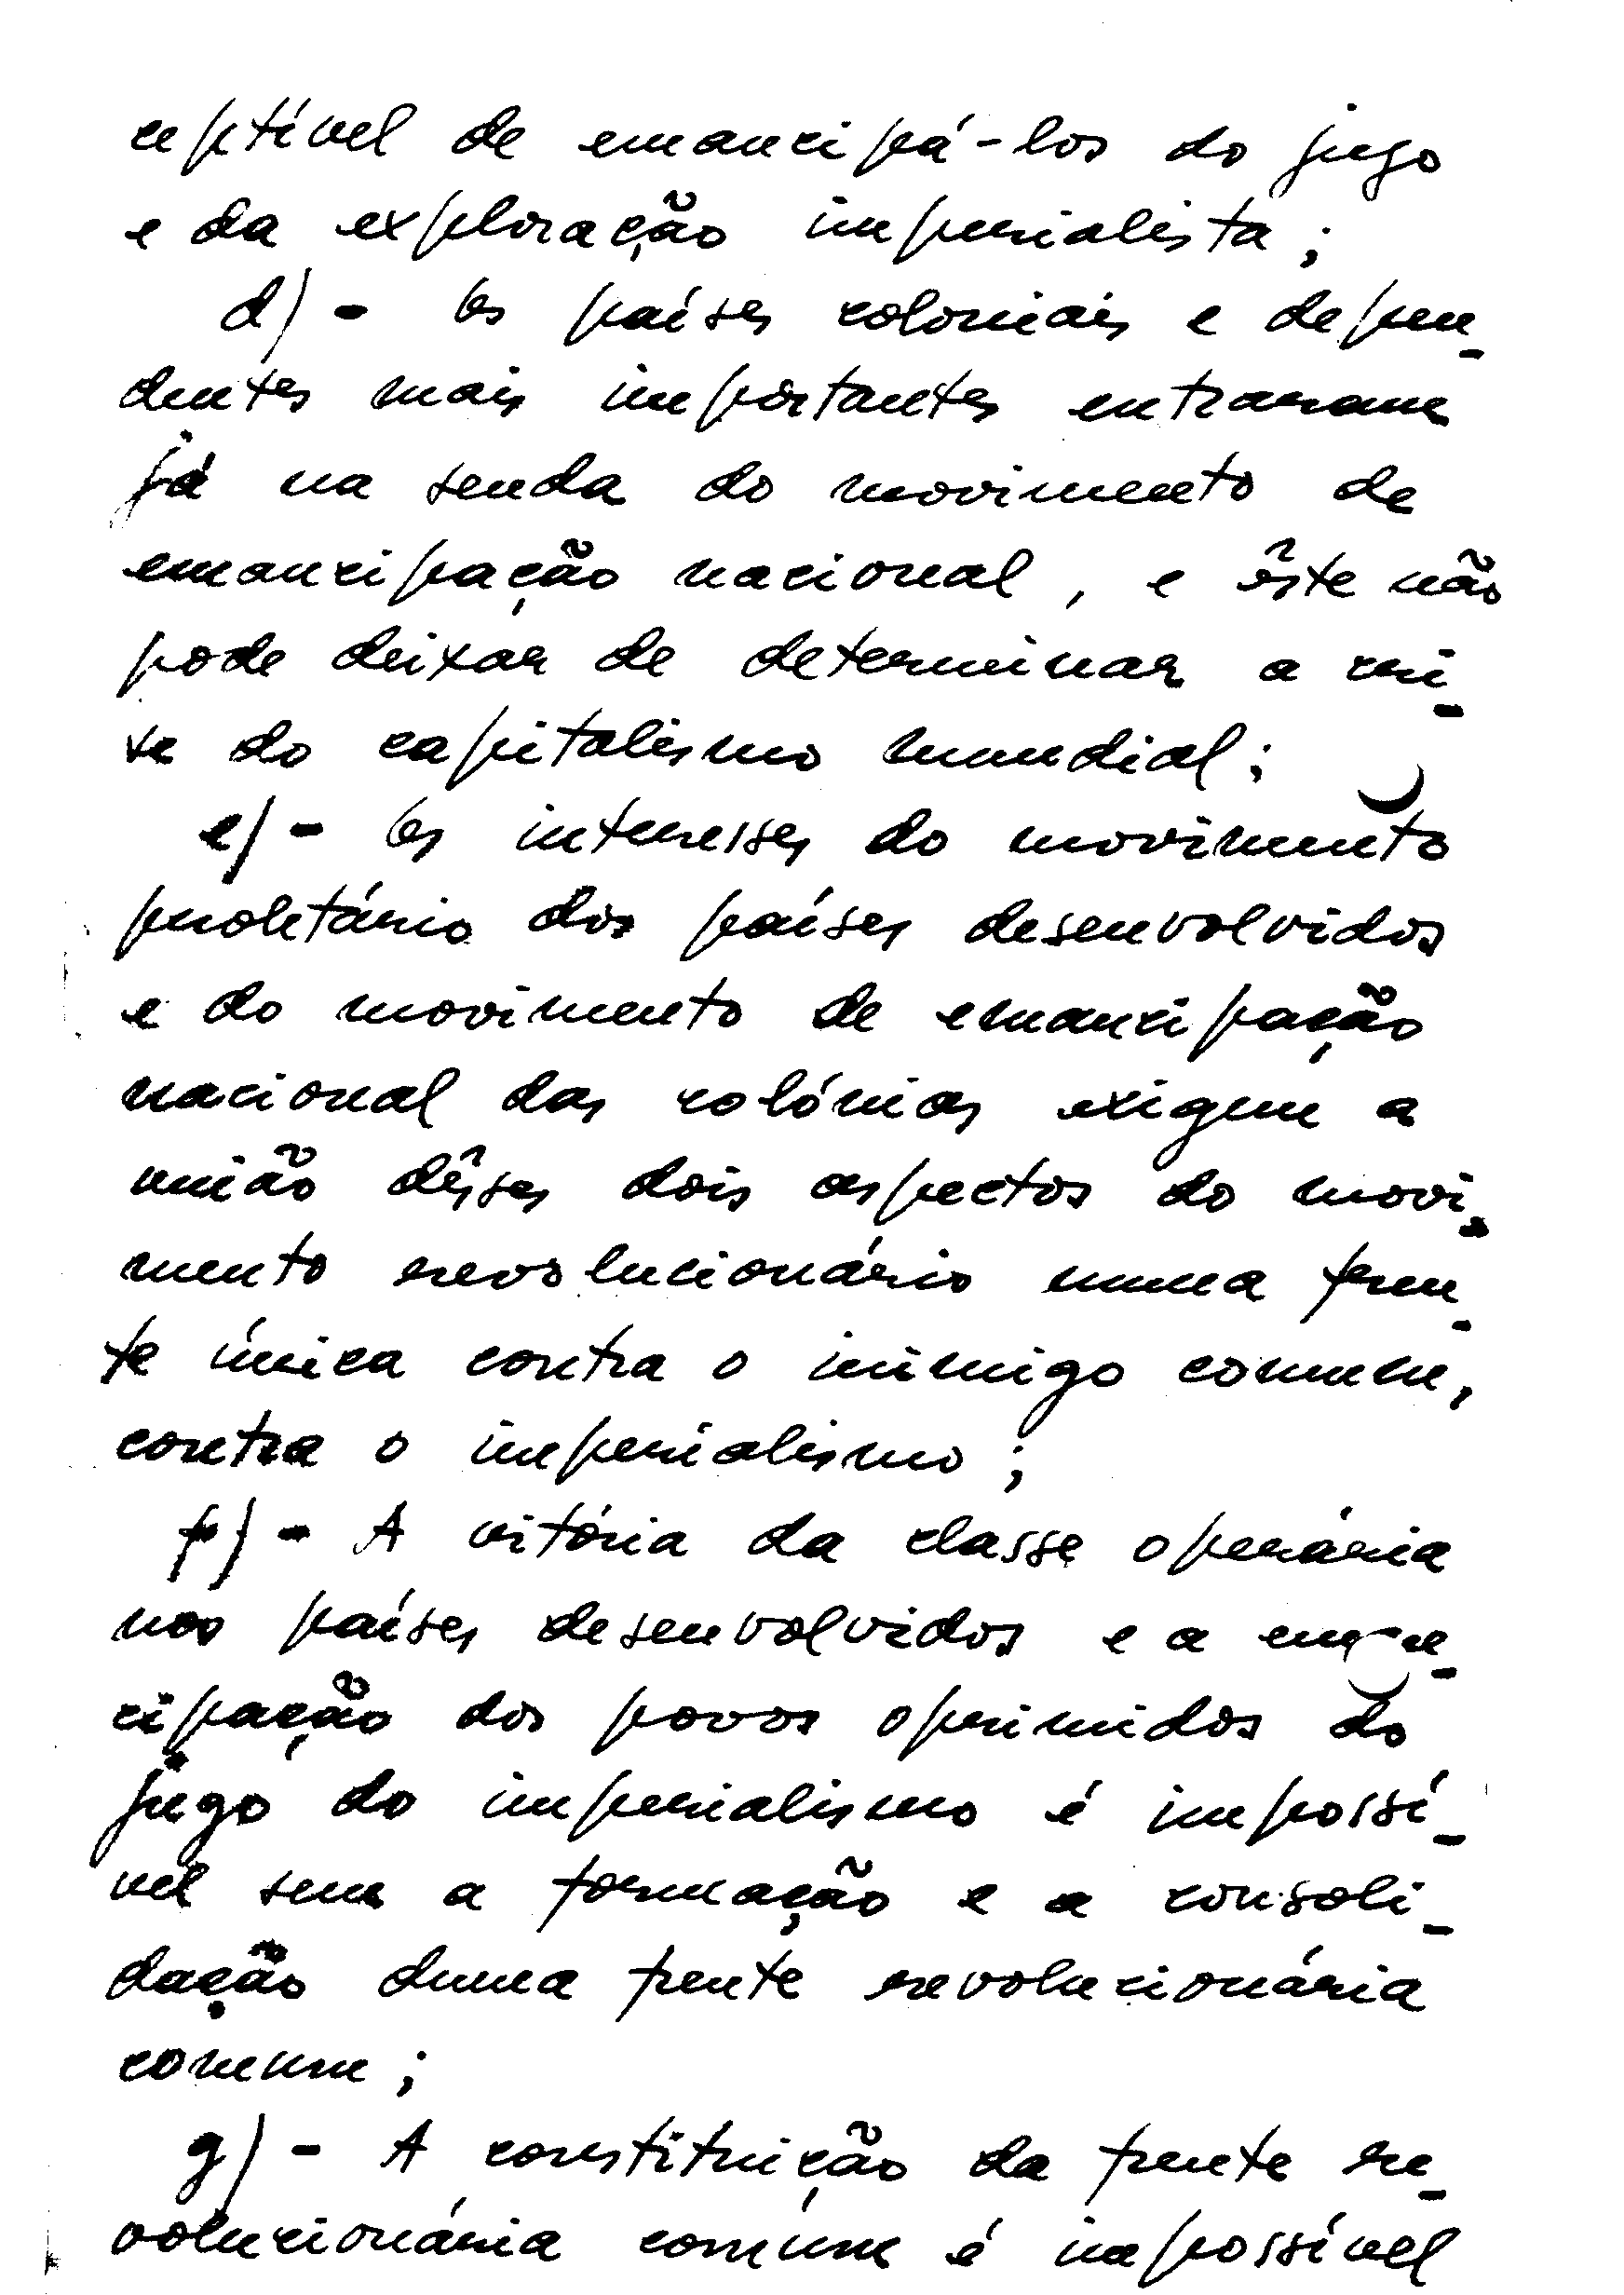 ceptível de emancipá-los do jugo
e da exploração imperialista;
d) - Os países coloniais e depen-
dentes mais importantes entraram
já na senda do movimento de
emancipação nacional, e êste não
pode deixar de determinar a cri-
se do capitalismo mundial;
e) - Os interesses do movimento
proletário dos países desenvolvidos
e do movimento de emancipação
nacional das colónias exigem a
união dêsses dois aspectos do movi-
mento revolucionário numa fren-
te única contra o inimigo comum,
contra o imperialismo;
f) - A vitória da classe operária
nos países desenvolvidos e a eman-
cipação dos povos oprimidos do
jugo do imperialismo é impossí-
vel sem a formação e a consoli-
dação duma frente revolucionária
comum;
g) - A constituição da frente re-
volucionária comum é impossível